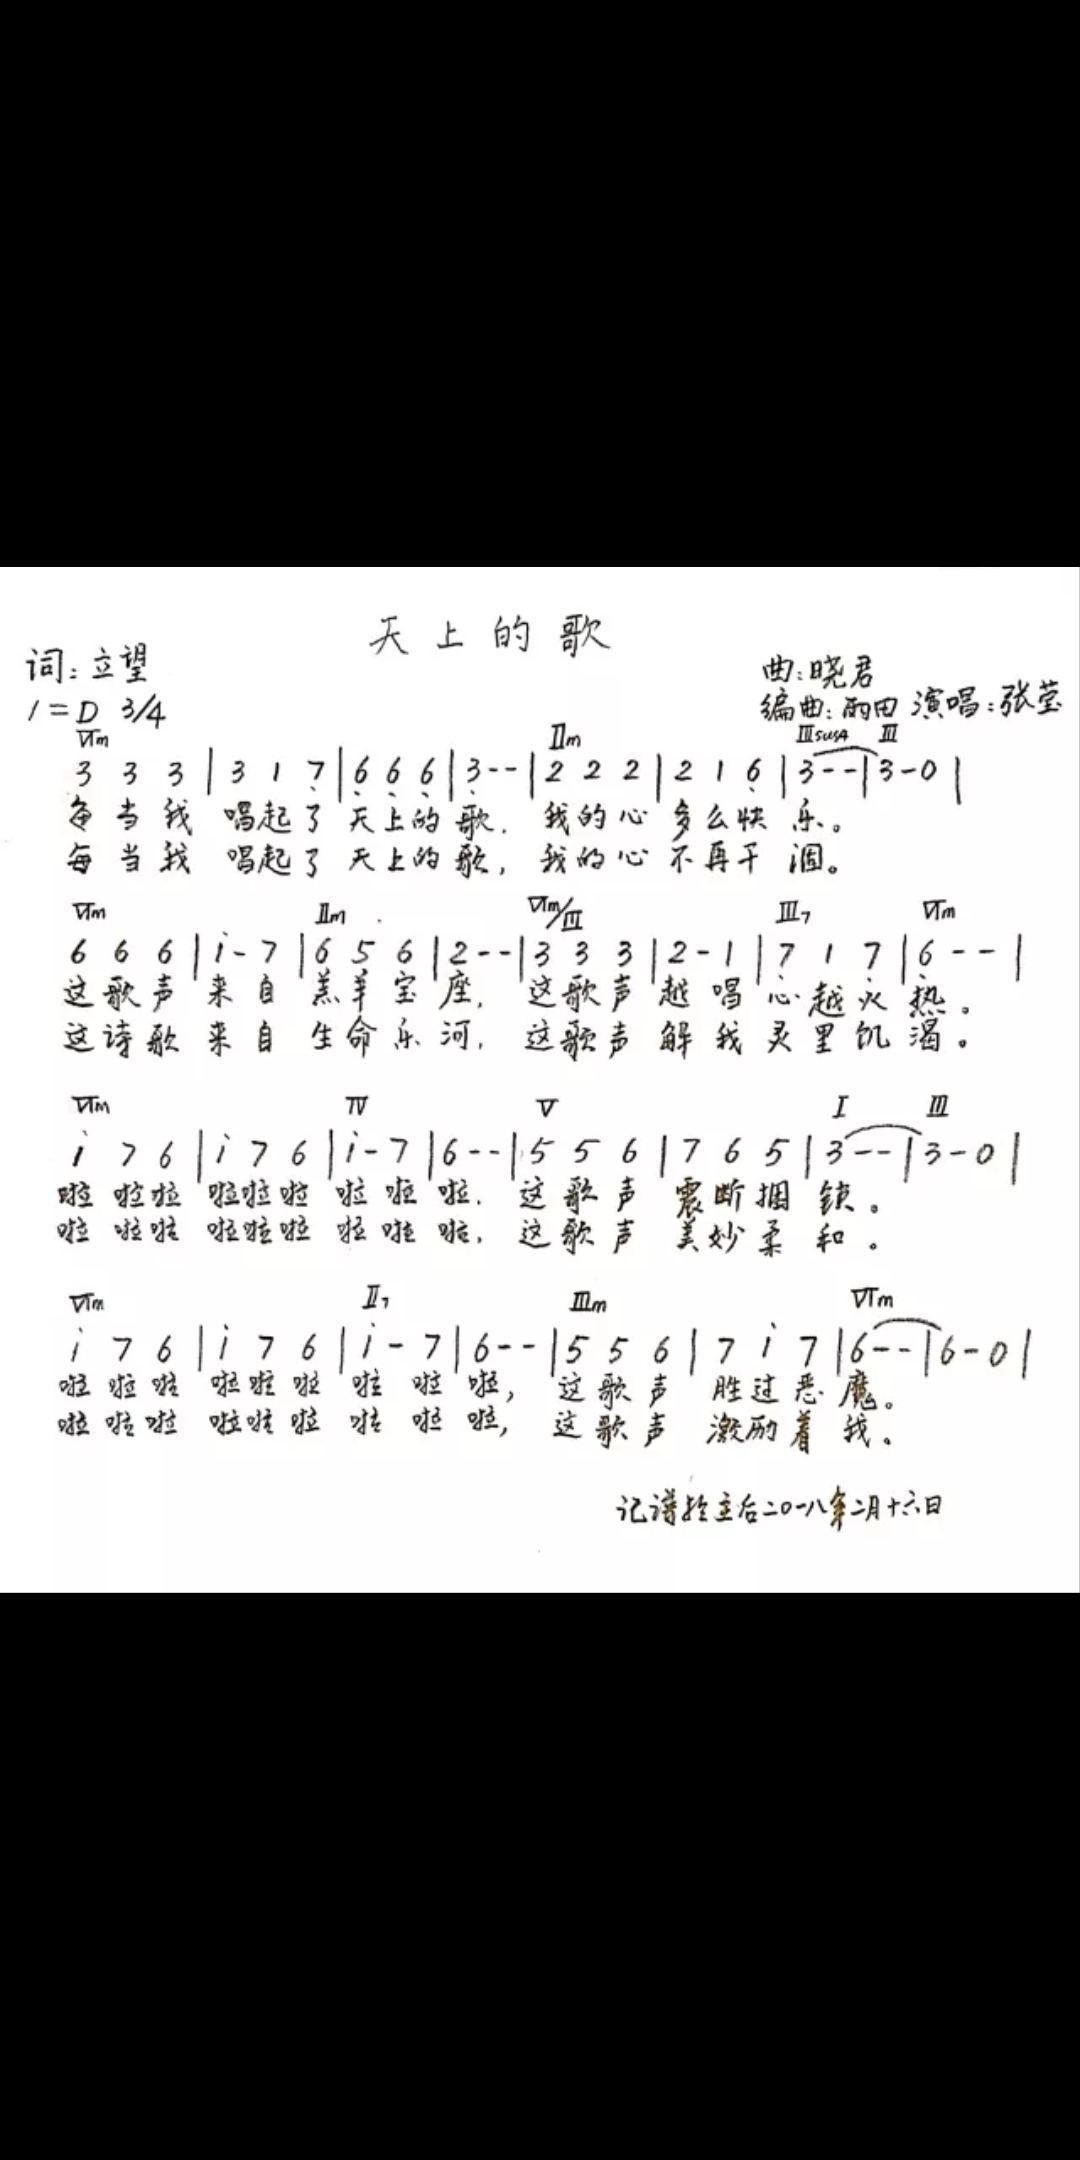 天上的歌
词:立望
曲:晓君
1=D 3/4
编曲:雨田 演唱:张莹
Ⅵm Ⅱm Ⅲsus4 Ⅲ
3 3 3 | 3 1 7̣ | 6̣ 6̣ 6̣ | 3̣ - - | 2 2 2 | 2 1 6̣ | 3 - - | 3 - 0 |
每当我 唱起了 天上的歌, 我的心 多么快乐。
每当我 唱起了 天上的歌, 我的心 不再干涸。
Ⅵm Ⅱm Ⅵm/Ⅲ Ⅲ7 Ⅵm
6 6 6 | i - 7 | 6 5 6 | 2 - - | 3 3 3 | 2 - 1 | 7̣ 1 7̣ | 6̣ - - |
这歌声 来自 羔羊宝座, 这歌声 越唱 心越火热。
这诗歌 来自 生命乐河, 这歌声 解我 灵里饥渴。
Ⅵm Ⅳ Ⅴ Ⅰ Ⅲ
i 7 6 | i 7 6 | i - 7 | 6 - - | 5 5 6 | 7 6 5 | 3 - - | 3 - 0 |
啦啦啦 啦啦啦 啦啦啦, 这歌声 震断捆锁。
啦啦啦 啦啦啦 啦啦啦, 这歌声 美妙柔和。
Ⅵm Ⅱ7 Ⅲm Ⅵm
i 7 6 | i 7 6 | i - 7 | 6 - - | 5 5 6 | 7 i 7 | 6 - - | 6 - 0 |
啦啦啦 啦啦啦 啦啦啦, 这歌声 胜过恶魔。
啦啦啦 啦啦啦 啦啦啦, 这歌声 激励着我。
记谱於主后二〇一八年二月十六日